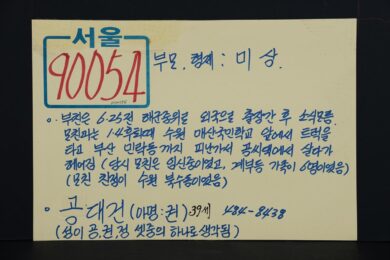 서울
90054
부모. 형제 : 미상.
o. 부친은 6.25전 해군중위로 외국으로 출장간 후 소식모름.
모친과는 1.4후퇴때 수원 매산국민학교 앞에서 트럭을
타고 부산 민락동까지 피난가서 공씨댁에서 살다가
헤어짐 (당시 모친은 임신중이였고, 계부등 가족이 6명이였음)
(모친 친정이 수원 북수동이였음)
o 공대건 (아명:권) 39세 484-8438
(성이 공,권,정 셋중의 하나로 생각됨)